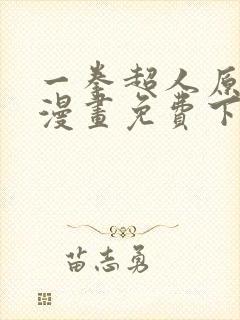 一拳超人原
漫畫免費下
苗志勇